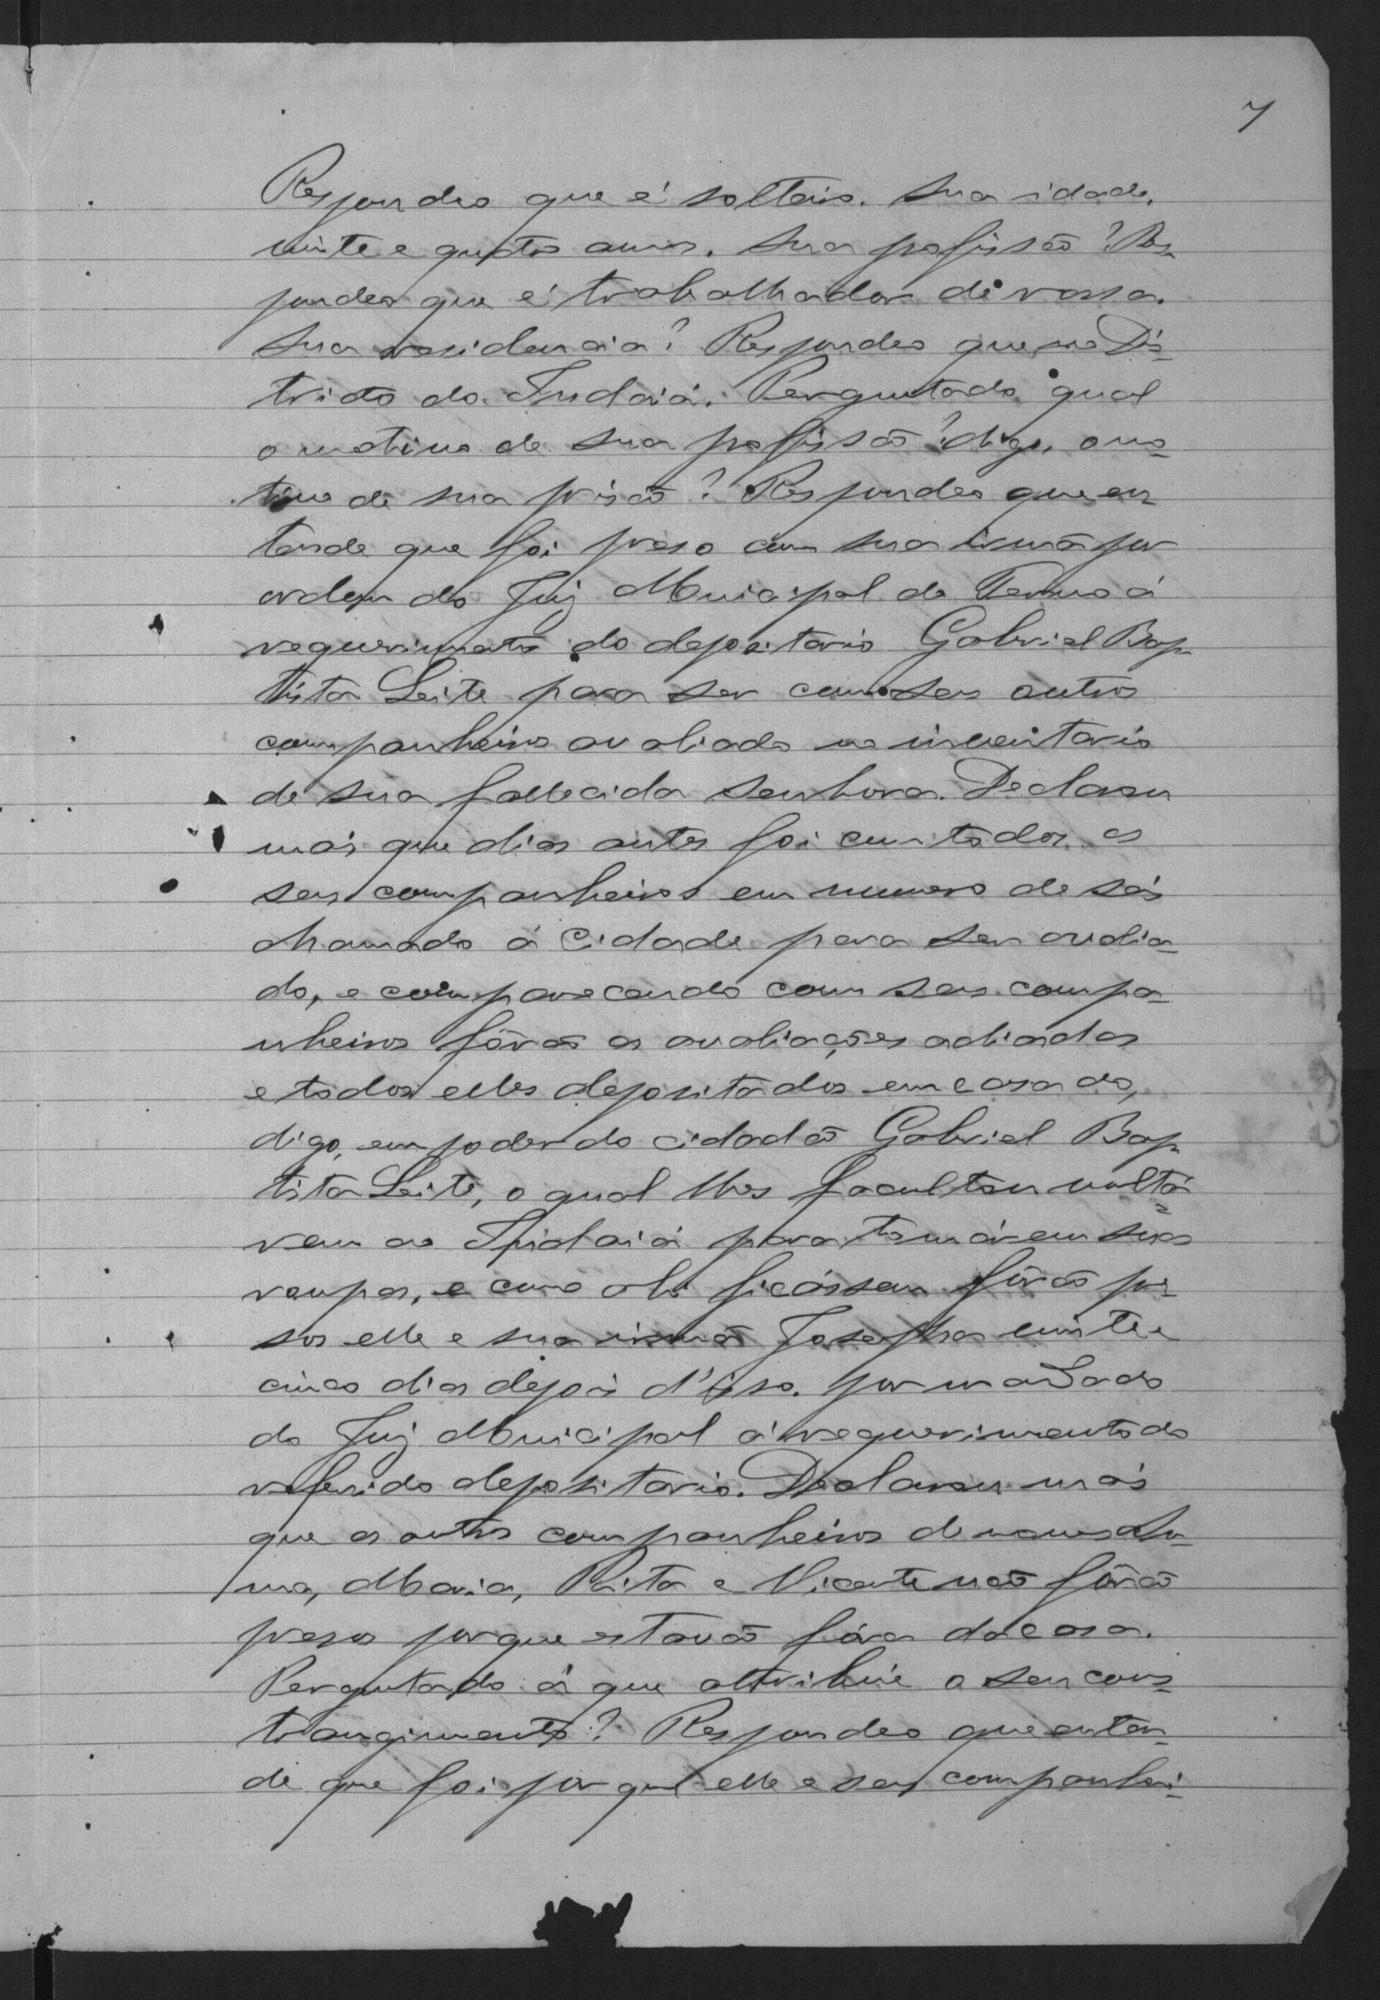 7
Respondeo que é solteiro. Sua idade,
vinte e quatro annos. Sua profissão? Res-
pondeo que é trabalhador de rossa.
Sua residencia? Respondeo que no Dis-
tricto do Indaiá. Perguntado qual
o motivo de sua profissão? digo, o mo-
tivo de sua prisão? Respondeo que en-
tende que foi preso com sua irmã por
ordem do Juiz Municipal do Termo á
requerimento do depositario Gabriel Bap-
tista Leite para ser com seus outros
companheiros avaliado no inventario
de sua fallecida Senhora. Declarou
mais que dias antes foi com todos os
seus companheiros em numero de seis
chamado á Cidade para ser avalia-
do, e comparecendo com seus compa-
nheiros fôrão as avaliações adiadas
e todos elles depositados em casa do,
digo, em poder do cidadão Gabriel Bap-
tista Leite, o qual lhes facultou voltá-
rem ao Indaiá para tomárem suas
roupas, e como ali ficássem fôrão pre-
sos elle e sua irmã Josepha vinte e
cinco dias depois d'isso. por mandado
do Juiz Municipal á requerimento do
referido depositario. Declarou mais
que os outros companheiros de nomes
Maria, Rita e Vicente não fôrão
presos porque estavão fóra da casa.
Perguntado á que attribúe o seu cons-
trangimento? Respondeo que enten-
de que foi por que elle e seus companhei-